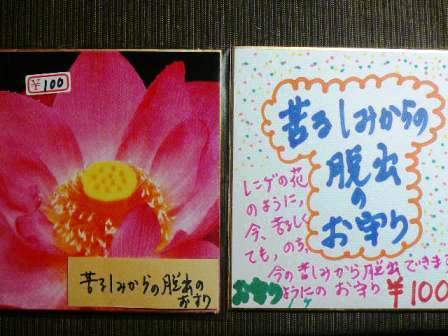 ¥100
苦しみからの脱出の
お守り
苦るしみからの
脱出
の
お守り
レンゲの花
のように,
今、苦るしく
ても,のち
今の苦しみから脱出できます
ようにの お守り
お守り
¥100